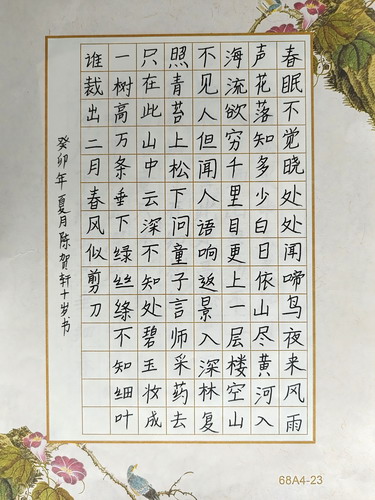 春眠不觉晓处处闻啼鸟夜来风雨
声花落知多少白日依山尽黄河入
海流欲穷千里目更上一层楼空山
不见人但闻人语响返景入深林复
照青苔上松下问童子言师采药去
只在此山中云深不知处碧玉妆成
一树高万条垂下绿丝绦不知细叶
谁裁出二月春风似剪刀
癸卯年夏月陈贺轩十岁书
68A4-23